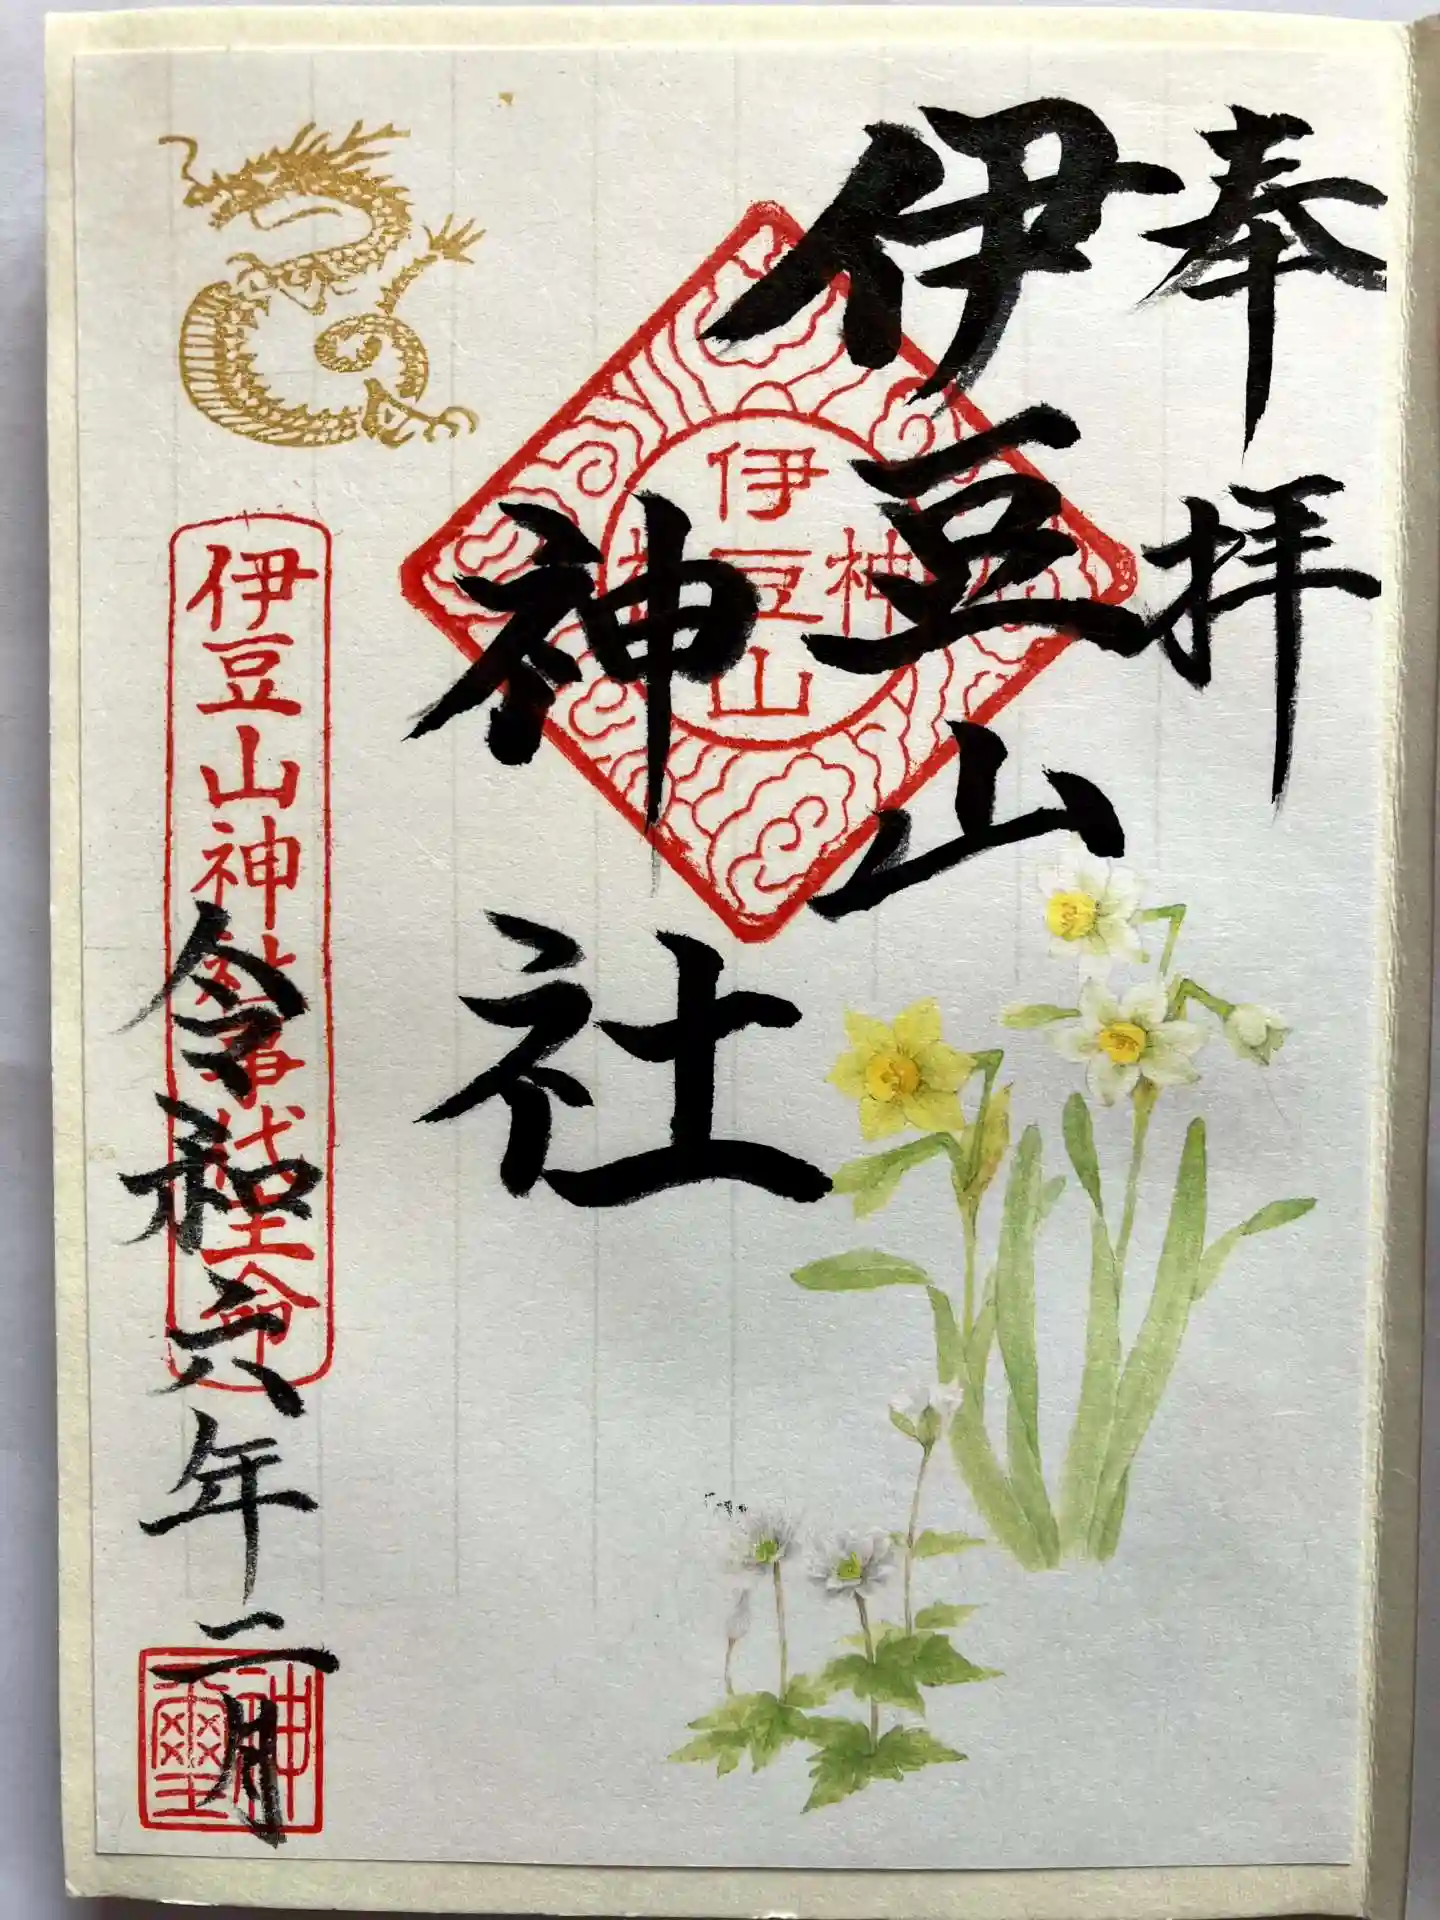 奉拝
伊豆山
神社
伊豆山
神社
伊豆山神社事代主命
令和六年二月
神璽